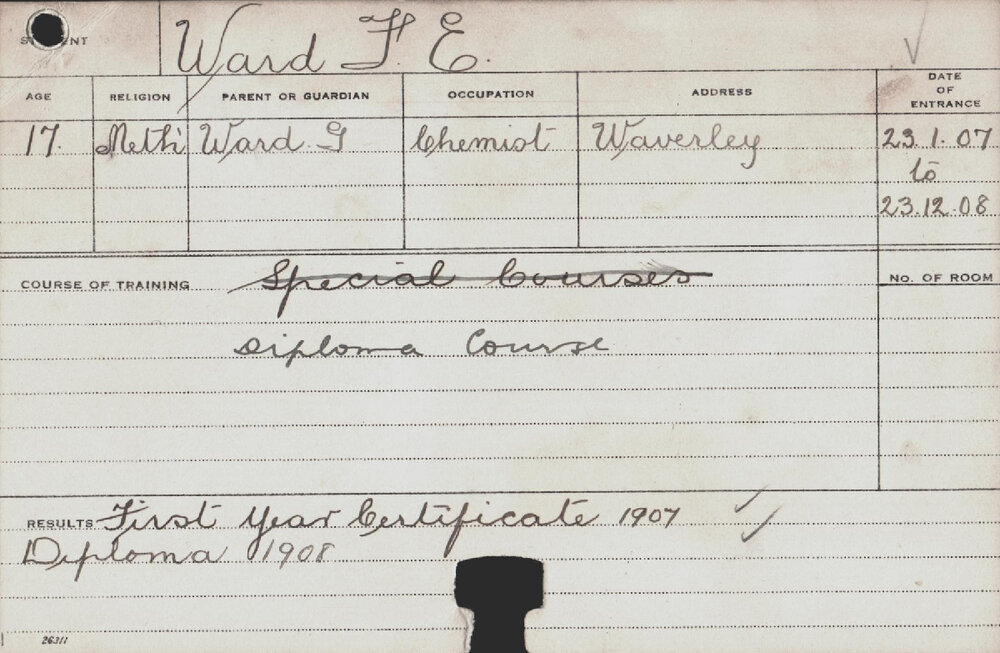 STUDENT Ward F. E.
AGE RELIGION PARENT OR GUARDIAN OCCUPATION ADDRESS DATE OF ENTRANCE
17. Meth' Ward. G Chemist Waverley 23.1.07
to
23.12.08
COURSE OF TRAINING Special Courses NO. OF ROOM
Diploma Course
RESULTS First Year Certificate 1907
Diploma 1908
26311